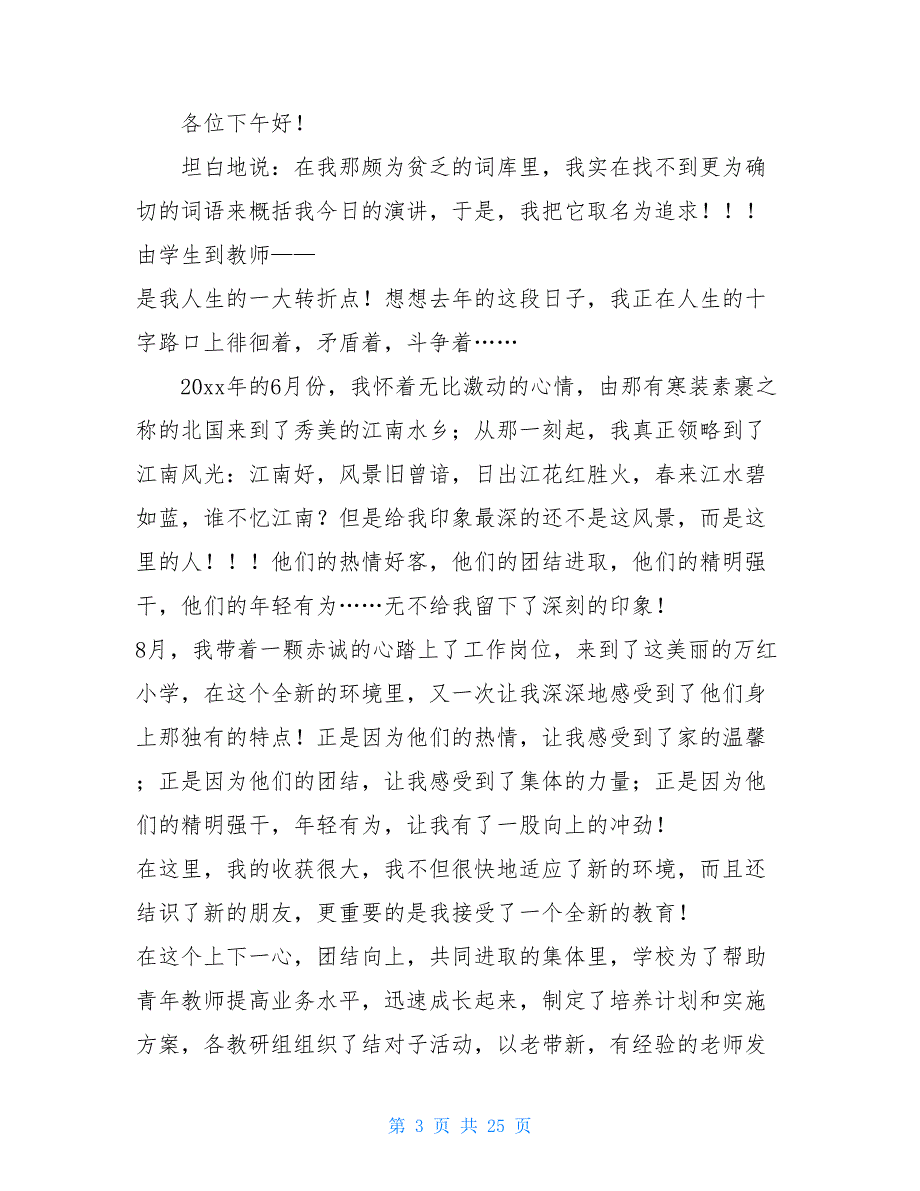 各位下午好！
坦白地说：在我那颇为贫乏的词库里，我实在找不到更为确
切的词语来概括我今日的演讲，于是，我把它取名为追求！！！
由学生到教师——
是我人生的一大转折点！想想去年的这段日子，我正在人生的十
字路口上徘徊着，矛盾着，斗争着……
20xx年的6月份，我怀着无比激动的心情，由那有寒装素裹之
称的北国来到了秀美的江南水乡；从那一刻起，我真正领略到了
江南风光：江南好，风景旧曾谙，日出江花红胜火，春来江水碧
如蓝，谁不忆江南？但是给我印象最深的还不是这风景，而是这
里的人！！！他们的热情好客，他们的团结进取，他们的精明强
干，他们的年轻有为……无不给我留下了深刻的印象！
8月，我带着一颗赤诚的心踏上了工作岗位，来到了这美丽的万红
小学，在这个全新的环境里，又一次让我深深地感受到了他们身
上那独有的特点！正是因为他们的热情，让我感受到了家的温馨
；正是因为他们的团结，让我感受到了集体的力量；正是因为他
们的精明强干，年轻有为，让我有了一股向上的冲劲！
在这里，我的收获很大，我不但很快地适应了新的环境，而且还
结识了新的朋友，更重要的是我接受了一个全新的教育！
在这个上下一心，团结向上，共同进取的集体里，学校为了帮助
青年教师提高业务水平，迅速成长起来，制定了培养计划和实施
方案，各教研组组织了结对子活动，以老带新，有经验的老师发
第 3 页 共 25 页